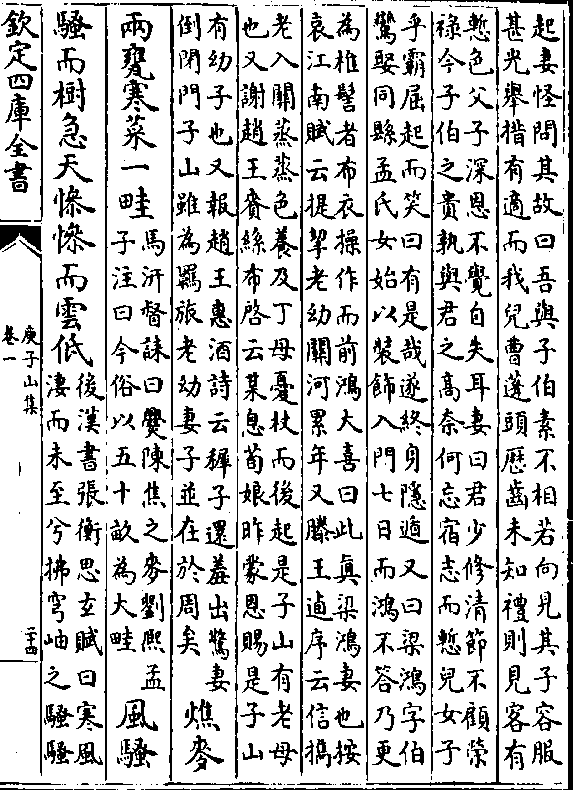 起妻怪問其故曰吾與子伯素不相若向見其子容服
甚光舉措有適而我兒曹蓬頭厯齒未知禮則見客有
慙色父子深恩不覺自失耳妻曰君少修清節不顧榮
祿今子伯之貴孰與君之髙奈何忘宿志而慙兒女子
乎霸屈起而笑曰有是哉遂終身隱遁又曰梁鴻字伯
鸞娶同縣孟氏女始以裝飾入門七日而鴻不答乃更
為椎髻者布衣操作而前鴻大喜曰此真梁鴻妻也按
哀江南賦云提挈老幼關河累年又滕王逌序云信攜
老入關蒸蒸色養及丁母憂杖而後起是子山有老母
也又謝趙王賚絲布啓云某息荀娘昨蒙恩賜是子山
有幼子也又報趙王惠酒詩云穉子還羞出驚妻
倒閉門子山雖為羈旅老幼妻子並在於周矣
燋麥
兩甕寒菜一畦
馬汧督誄曰爨陳焦之麥劉熙孟
子注曰今俗以五十畝為大畦
風騷
騷而樹急天慘慘而雲低
後漢書張衡思𤣥賦曰寒風
淒而未至兮拂穹岫之騷騷
欽定四庫全書
庾子山集
卷一
二十四